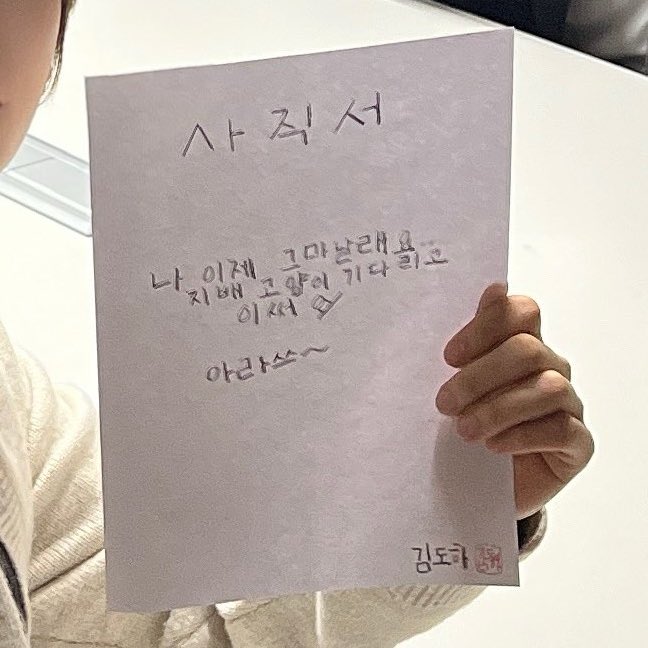 사직서
나 이제 그마날래요..
지배 고양이 기다리고
이써
아라쓰~
김도하